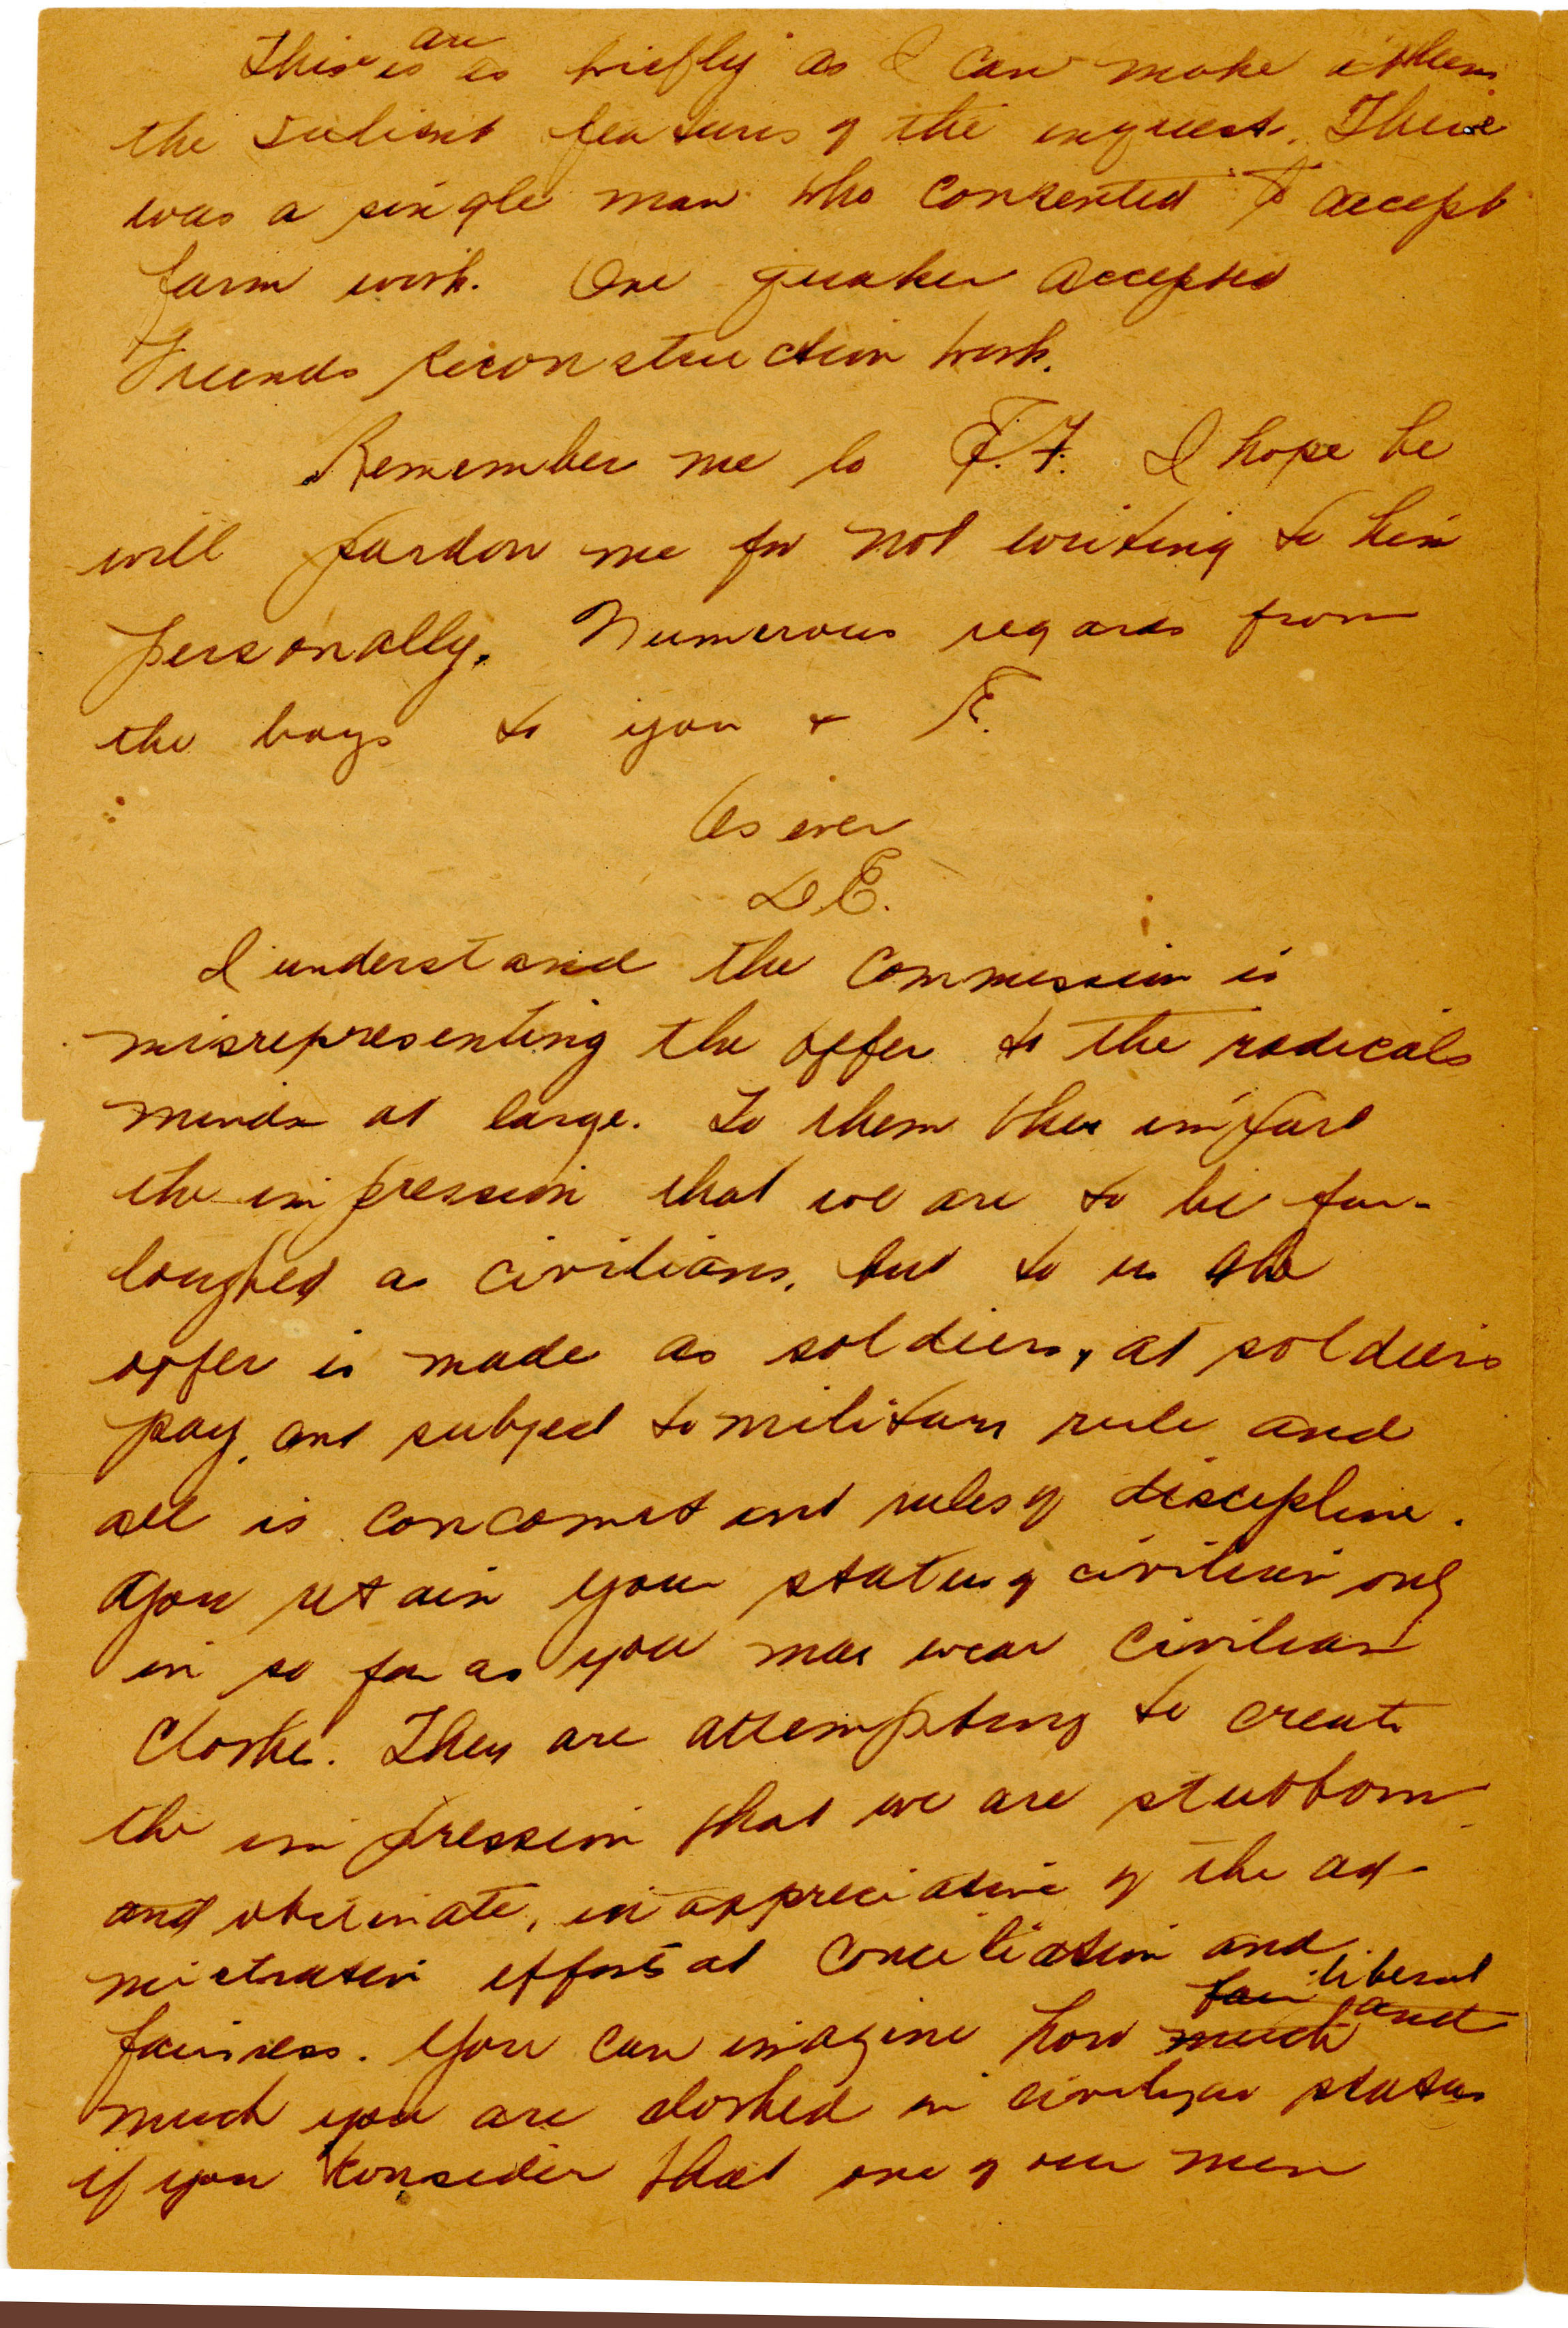 This is are as briefly as I can make them
the salient features of the inquest. There
was a single man who consented to accept
farm work. One quaker accepted
Friends reconstruction work.
Remember me to F.F. I hope he
will pardon me for not writing to him
personally. Numerous regards from
the boys to you & F.
As ever
D.E.
I understand the Commission is
misrepresenting the offer to the radicals
minds at large. To them they impart
the impression that we are to be fur-
loughed as civilians, but to us the
offer is made as soldiers, at soldiers
pay, and subject to military rule and
all is concomitant rules of discipline.
You retain your status of civilian only
in so far as you may wear civilian
clothe. They are attempting to create
the impression that we are stubborn
and obstinate, inappreciative of the ad-
ministration efforts at conciliation and
fairness. You can imagine how much fair liberal and
much you are clothed in civilian status
if you consider that one of our men